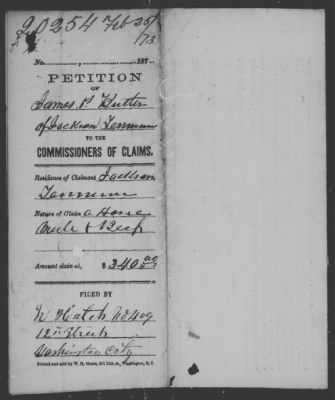 20254 Feb 25/73
No. ............, ............ 187
PETITION
OF
James P. Butler
of Jackson Tennessee
TO THE
COMMISSIONERS OF CLAIMS.
Residence of Claimant Jackson
Tennessee
Nature of Claim a Horse
Mule & Beef
Amount claimed, $ 340.00
FILED BY
W Hatch No 409
12th Street
Washington City
Printed and sold by W. H. Moore, 511 11th st., Washington, D. C.